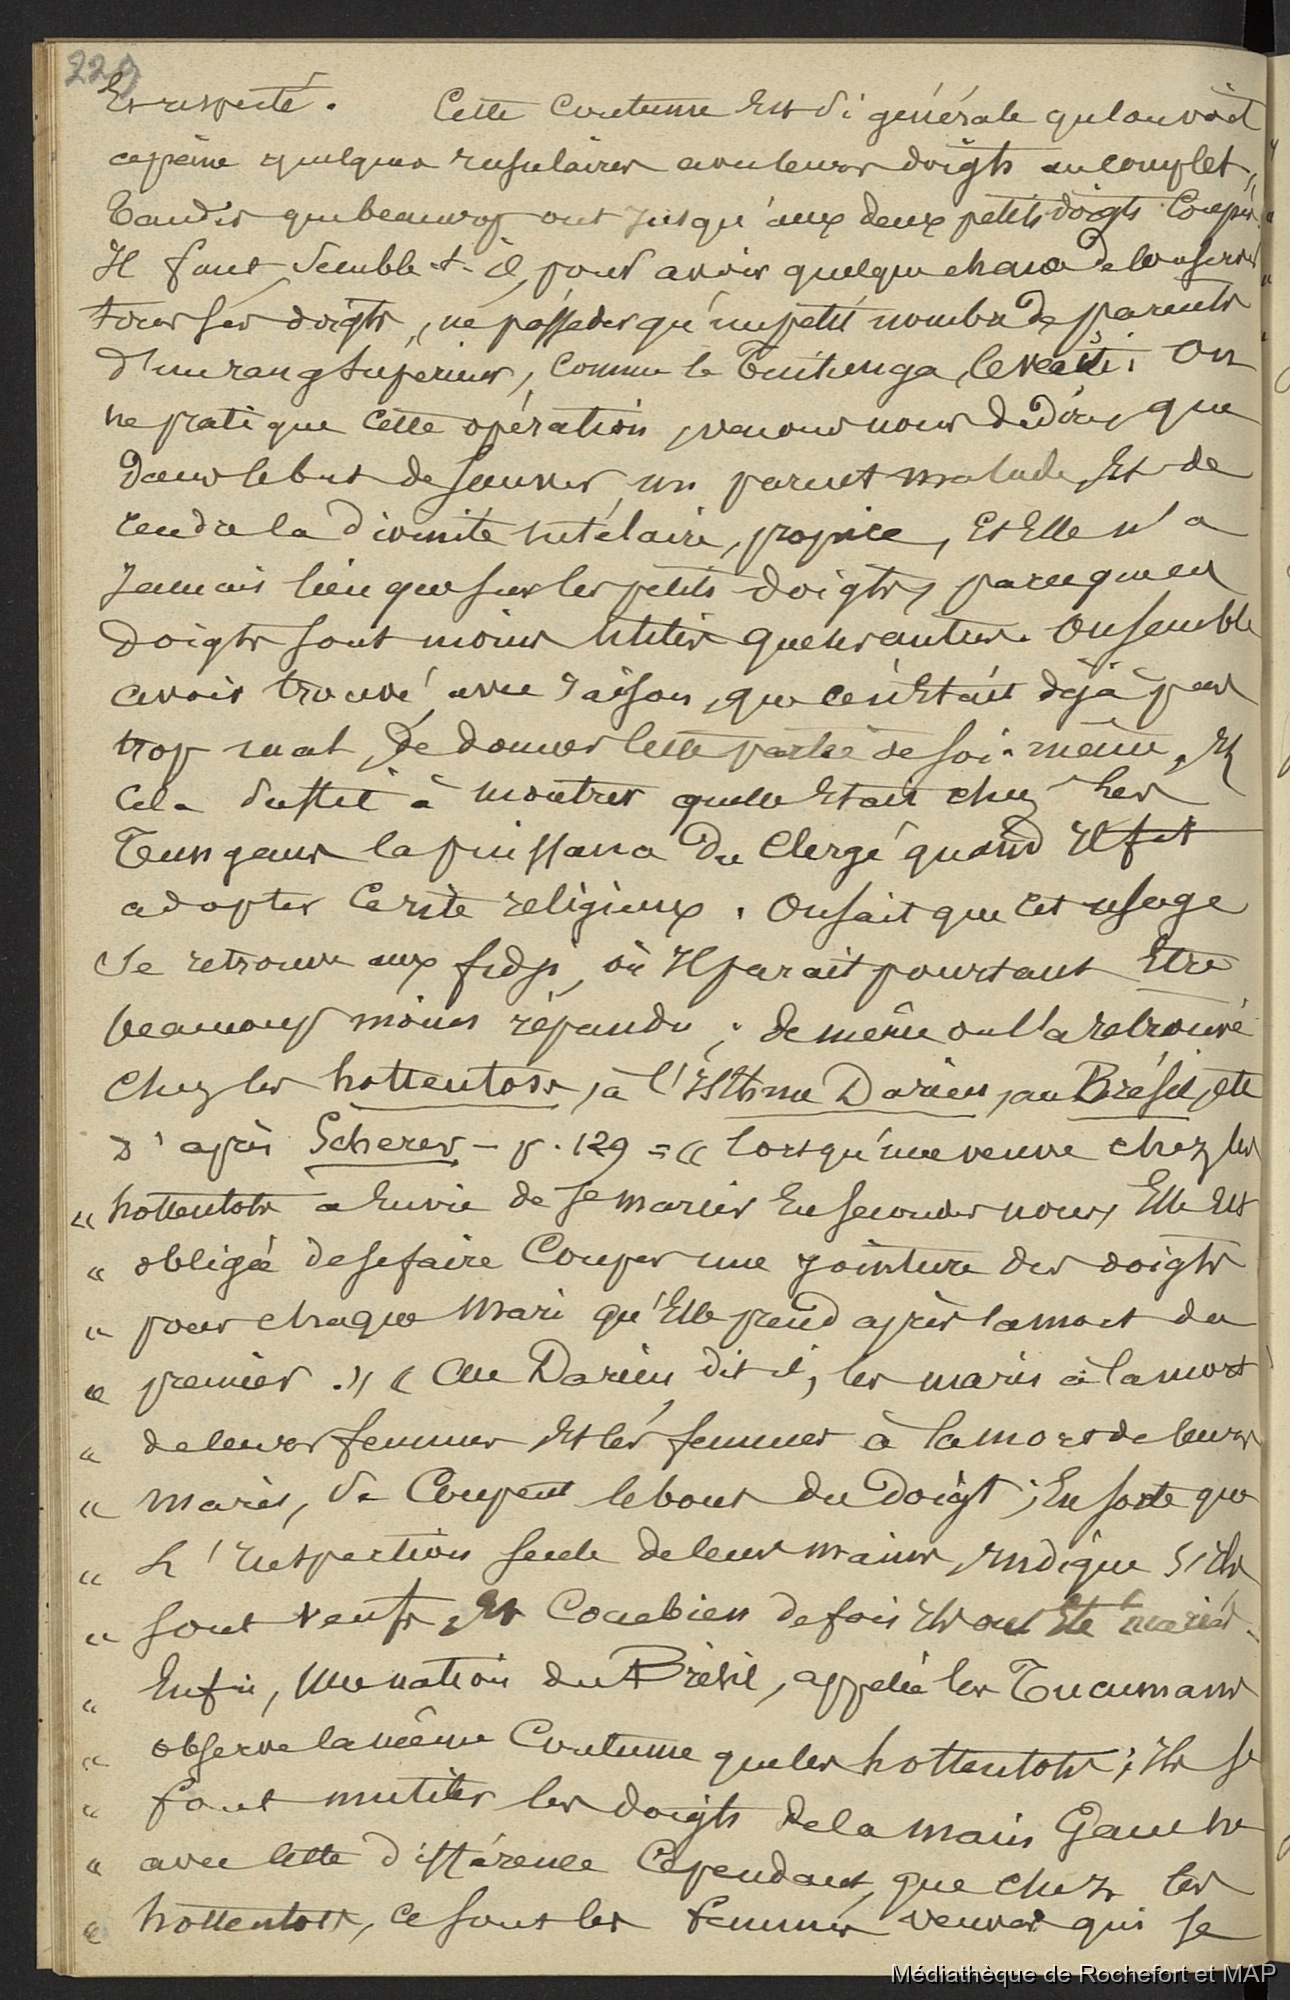 220
Et respecté. Cette coutume Est si générale qu'on voit
à peine quelques insulaires avec leurs doigts au complet,
tandis que beaucoup ont jusqu'aux deux petits doigts coupés.
Il faut, semble-t-il, pour avoir quelque chance de conserver
tous ses doigts, ne posséder qu'un petit nombre de parents
d'un rang supérieur, comme le Tuitunga, le veati. On
ne pratique cette opération, venons nous de dire, que
dans le but de sauver un parent malade, Et de
rendre la divinité tutélaire, propice, Et Elle n'a
jamais lieu que sur les petits doigts, parce que ces
doigts sont moins utiles que les autres. On semble
avoir trouvé avec raison, que c'était déjà pas
trop mal, de donner cette partie de soi-même, Et
cela suffit à montrer quelle Etait chez les
Tungans la puissance du clergé quand Il fit
adopter ce rite religieux. On sait que cet usage
se retrouve aux fidji, où Il parait pourtant Etre
beaucoup moins répandu ; de même on l'a retrouvé
chez les hottentots, à l'Isthme Darien, au Brésil, etc
D'après Scherer - p. 129 = « lorsqu'une veuve chez les
" hottentots a Envie de se marier En secondes noces, Elle Est
" obligée de se faire couper une jointure des doigts
" pour chaque mari qu'Elle prend après la mort du
" premier. » « Au Darien, dit il, les maris à la mort
" de leurs femmes Et les femmes à la mort de leurs
" maris, se coupent le bout du doigt ; En sorte que
" L'Inspection seule de leurs mains, Indique s'ils
" sont veufs, Et combien de fois Ils ont Eté mariés.
" Enfin, Une nation du Brésil, appelée les Tucumans
" observe la même coutume que les hottentots ; Ils se
" font mutiler les doigts de la main Gauche
" avec cette différence cependant, que chez les
" hottentots, ce sont les femmes veuves qui se
Médiathèque de Rochefort et MAP